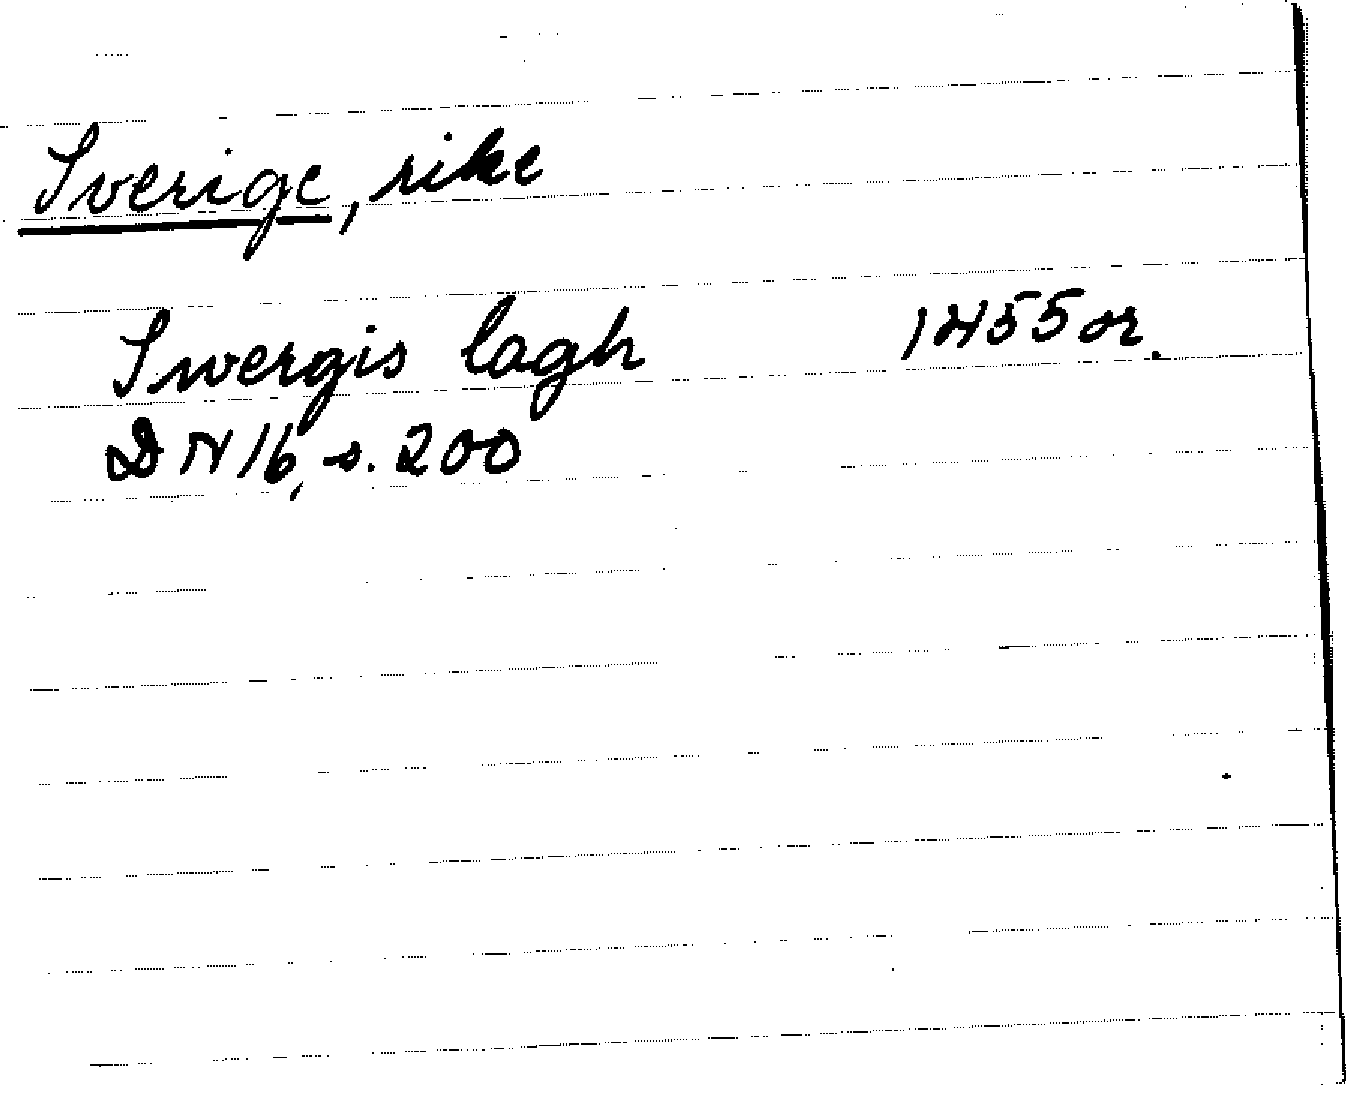 Sverige, rike
Swergis lagh 1455 or.
DN 16, s. 200